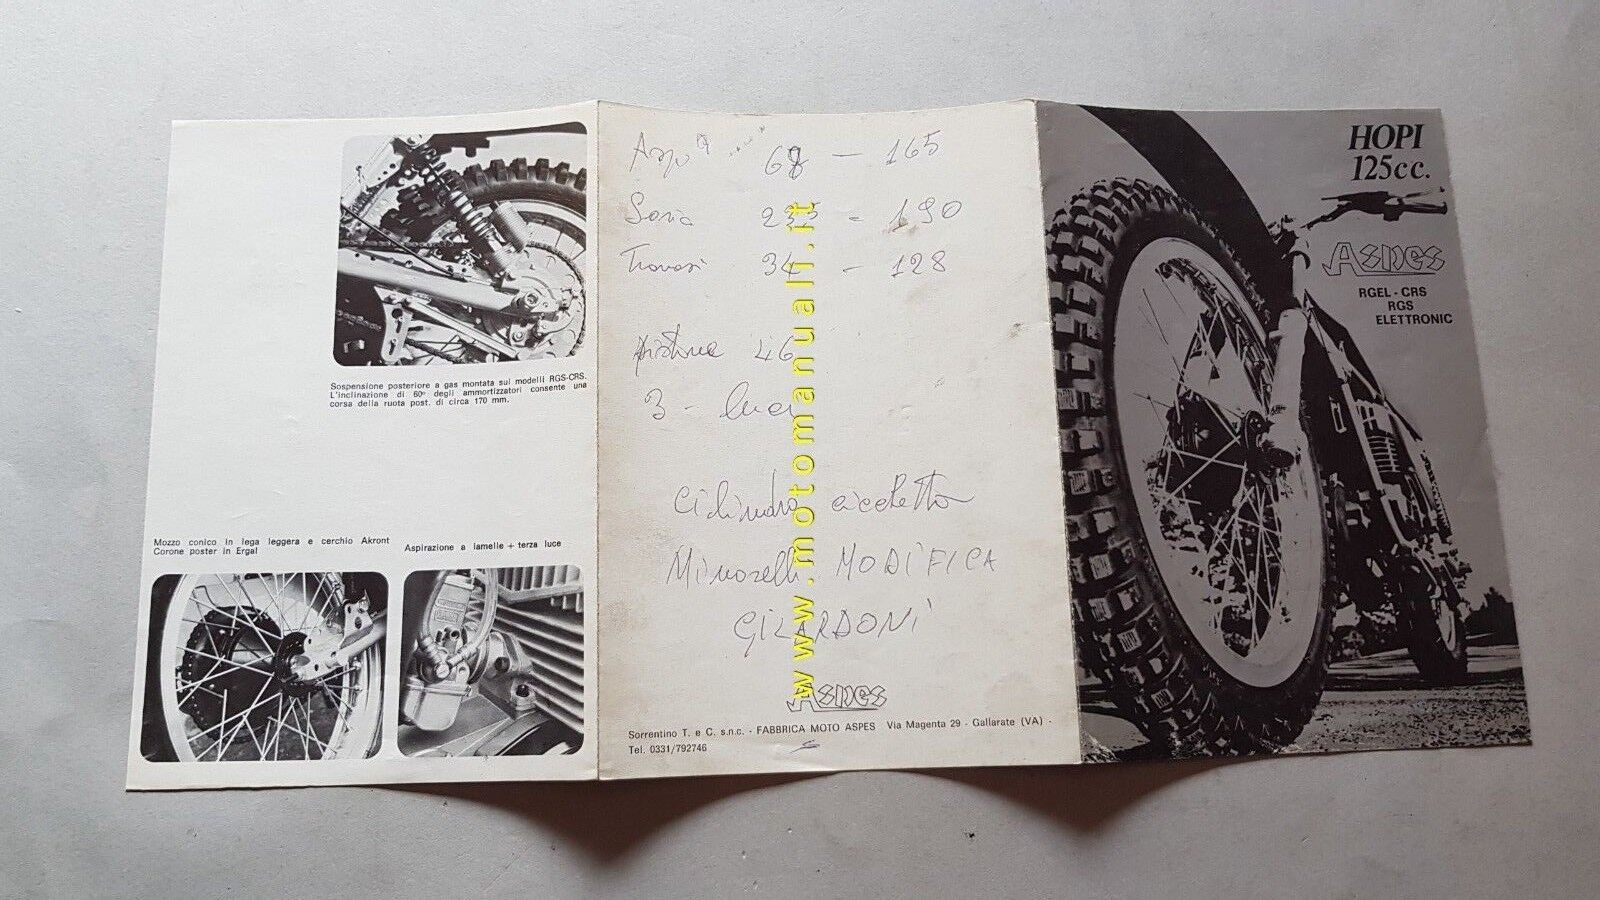 Sospensione posteriore a gas montata sui modelli RGS-CRS.
L'inclinazione di 60° degli ammortizzatori consente una
corsa della ruota post. di circa 170 mm.
Mozzo conico in lega leggera e cerchio Akront
Corone poster in Ergal
Aspirazione a lamelle + terza luce
- 165
- 190
Travasi 34 - 128
pistone 46
3 - luci
Cilindro
Minarelli MODIFICA
GILARDONI
Aspes
Sorrentino T. e C. s.n.c. - FABBRICA MOTO ASPES Via Magenta 29 - Gallarate (VA) -
Tel. 0331/792746
www.motomanuali.it
HOPI
125cc.
Aspes
RGEL - CRS
RGS
ELETTRONIC